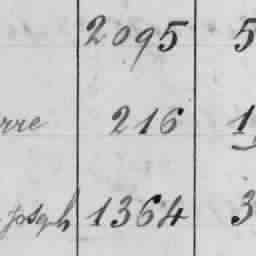 2095 5
rre 216 1
Joseph 1364 3